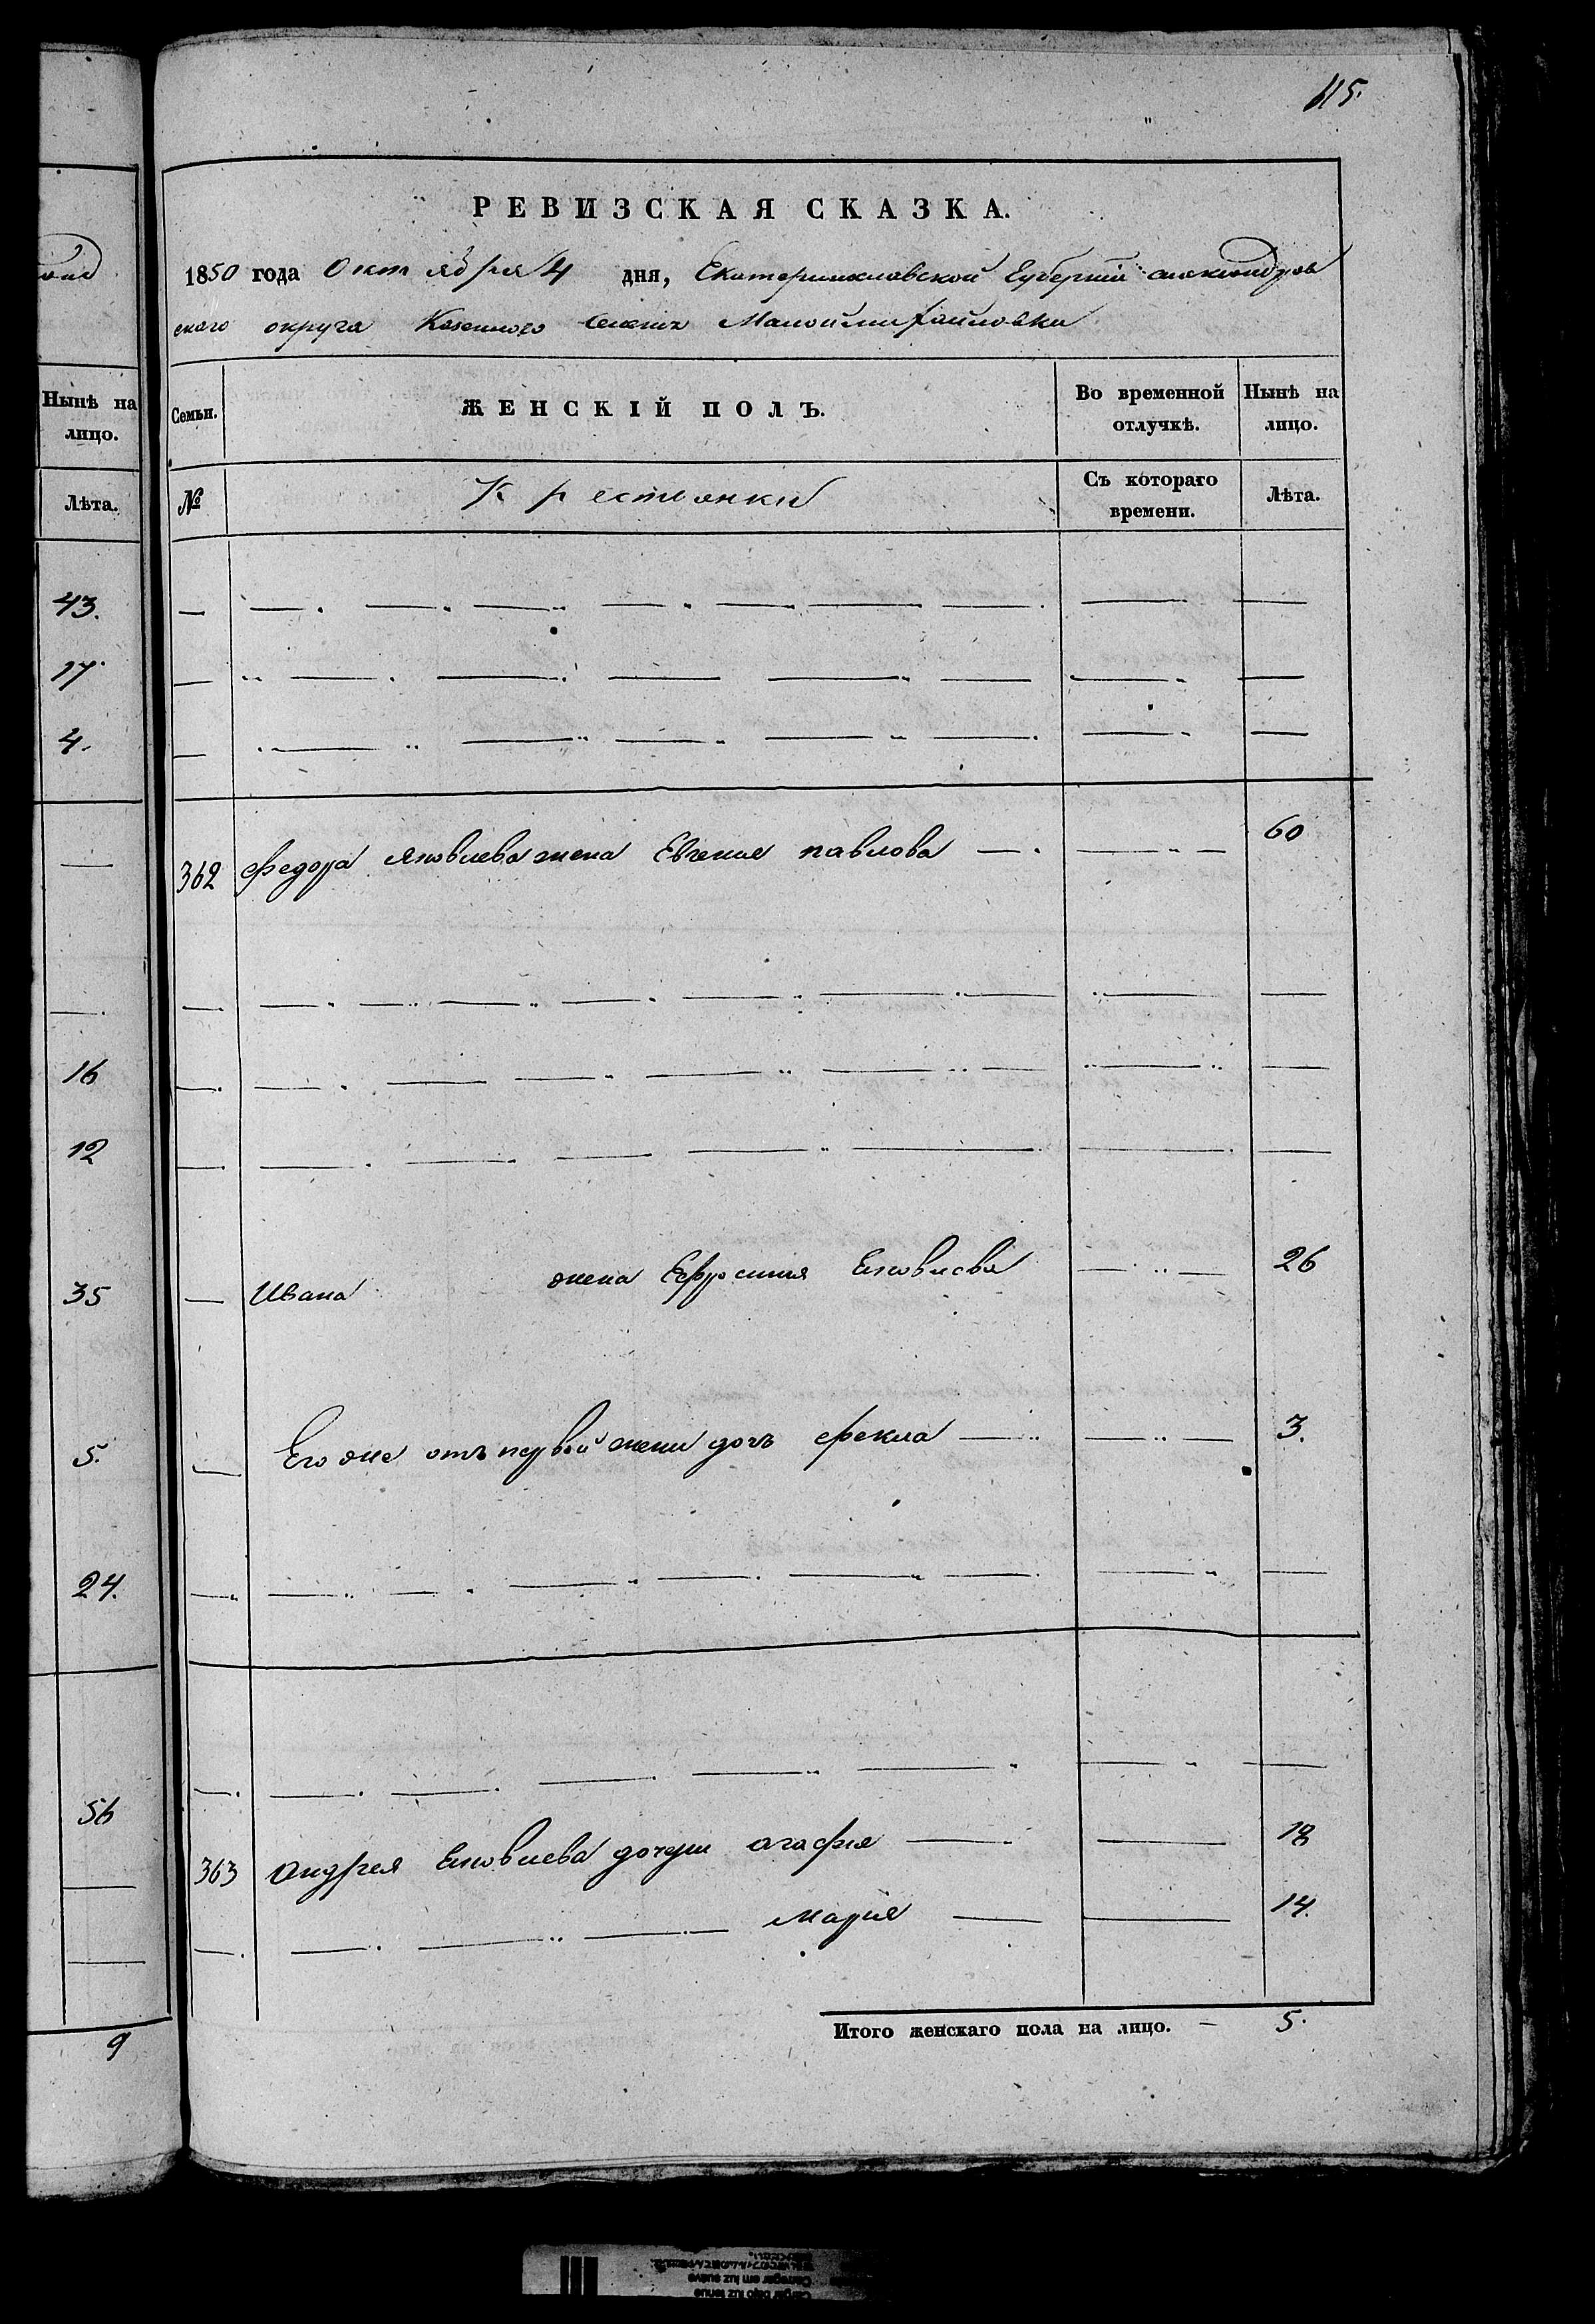 115.
РЕВИЗСКАЯ СКАЗКА.
1850 года Октября 4 дня, Екатеринославской Губернии александров
скаго округа Казенного Селения Маломихайловки
Нынѣ на лицо.
Лѣта.
43.
17.
4.
16
12
35
5.
24.
56
9
Семьи. ЖЕНСКІЙ ПОЛЪ. Во временной отлучкѣ. Нынѣ на лицо.
№ Крестьянки Съ котораго времени. Лѣта.
362 Федора Яковлева жена Евгения павлова 60
Ивана жена Ефросиния Яковлева 26
Его же отъ первой жены дочь Фекла 3.
363 Андрея Яковлева дочери агафия 18
Мария 14.
Итого женскаго пола на лицо. — 5.